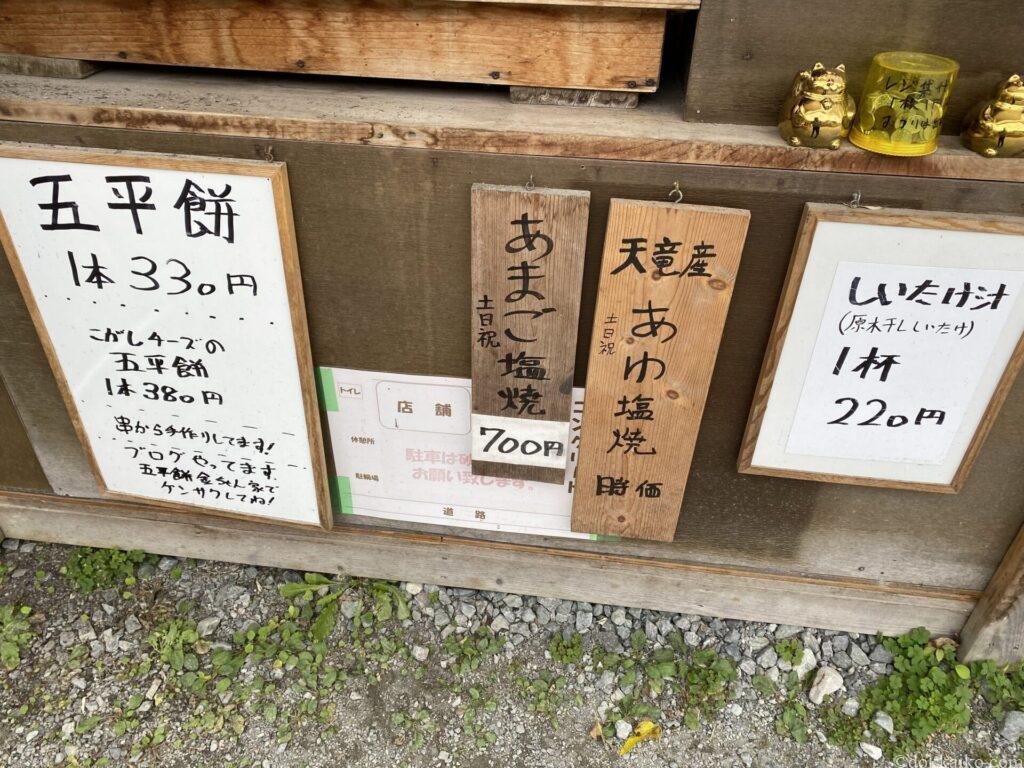 五平餅
1本330円
こがしチーズの
五平餅
1本380円
串から手作りしてます!
ブログやってます
五平餅
ケンサクしてね!
トイレ
店舗
休憩所
駐輪場
駐車は
お願い致します。
道路
あまご塩焼
土日祝
700円
天竜産
あゆ塩焼
土日祝
時価
しいたけ汁
(原木干ししいたけ)
1杯
220円
©dokkaiko.com